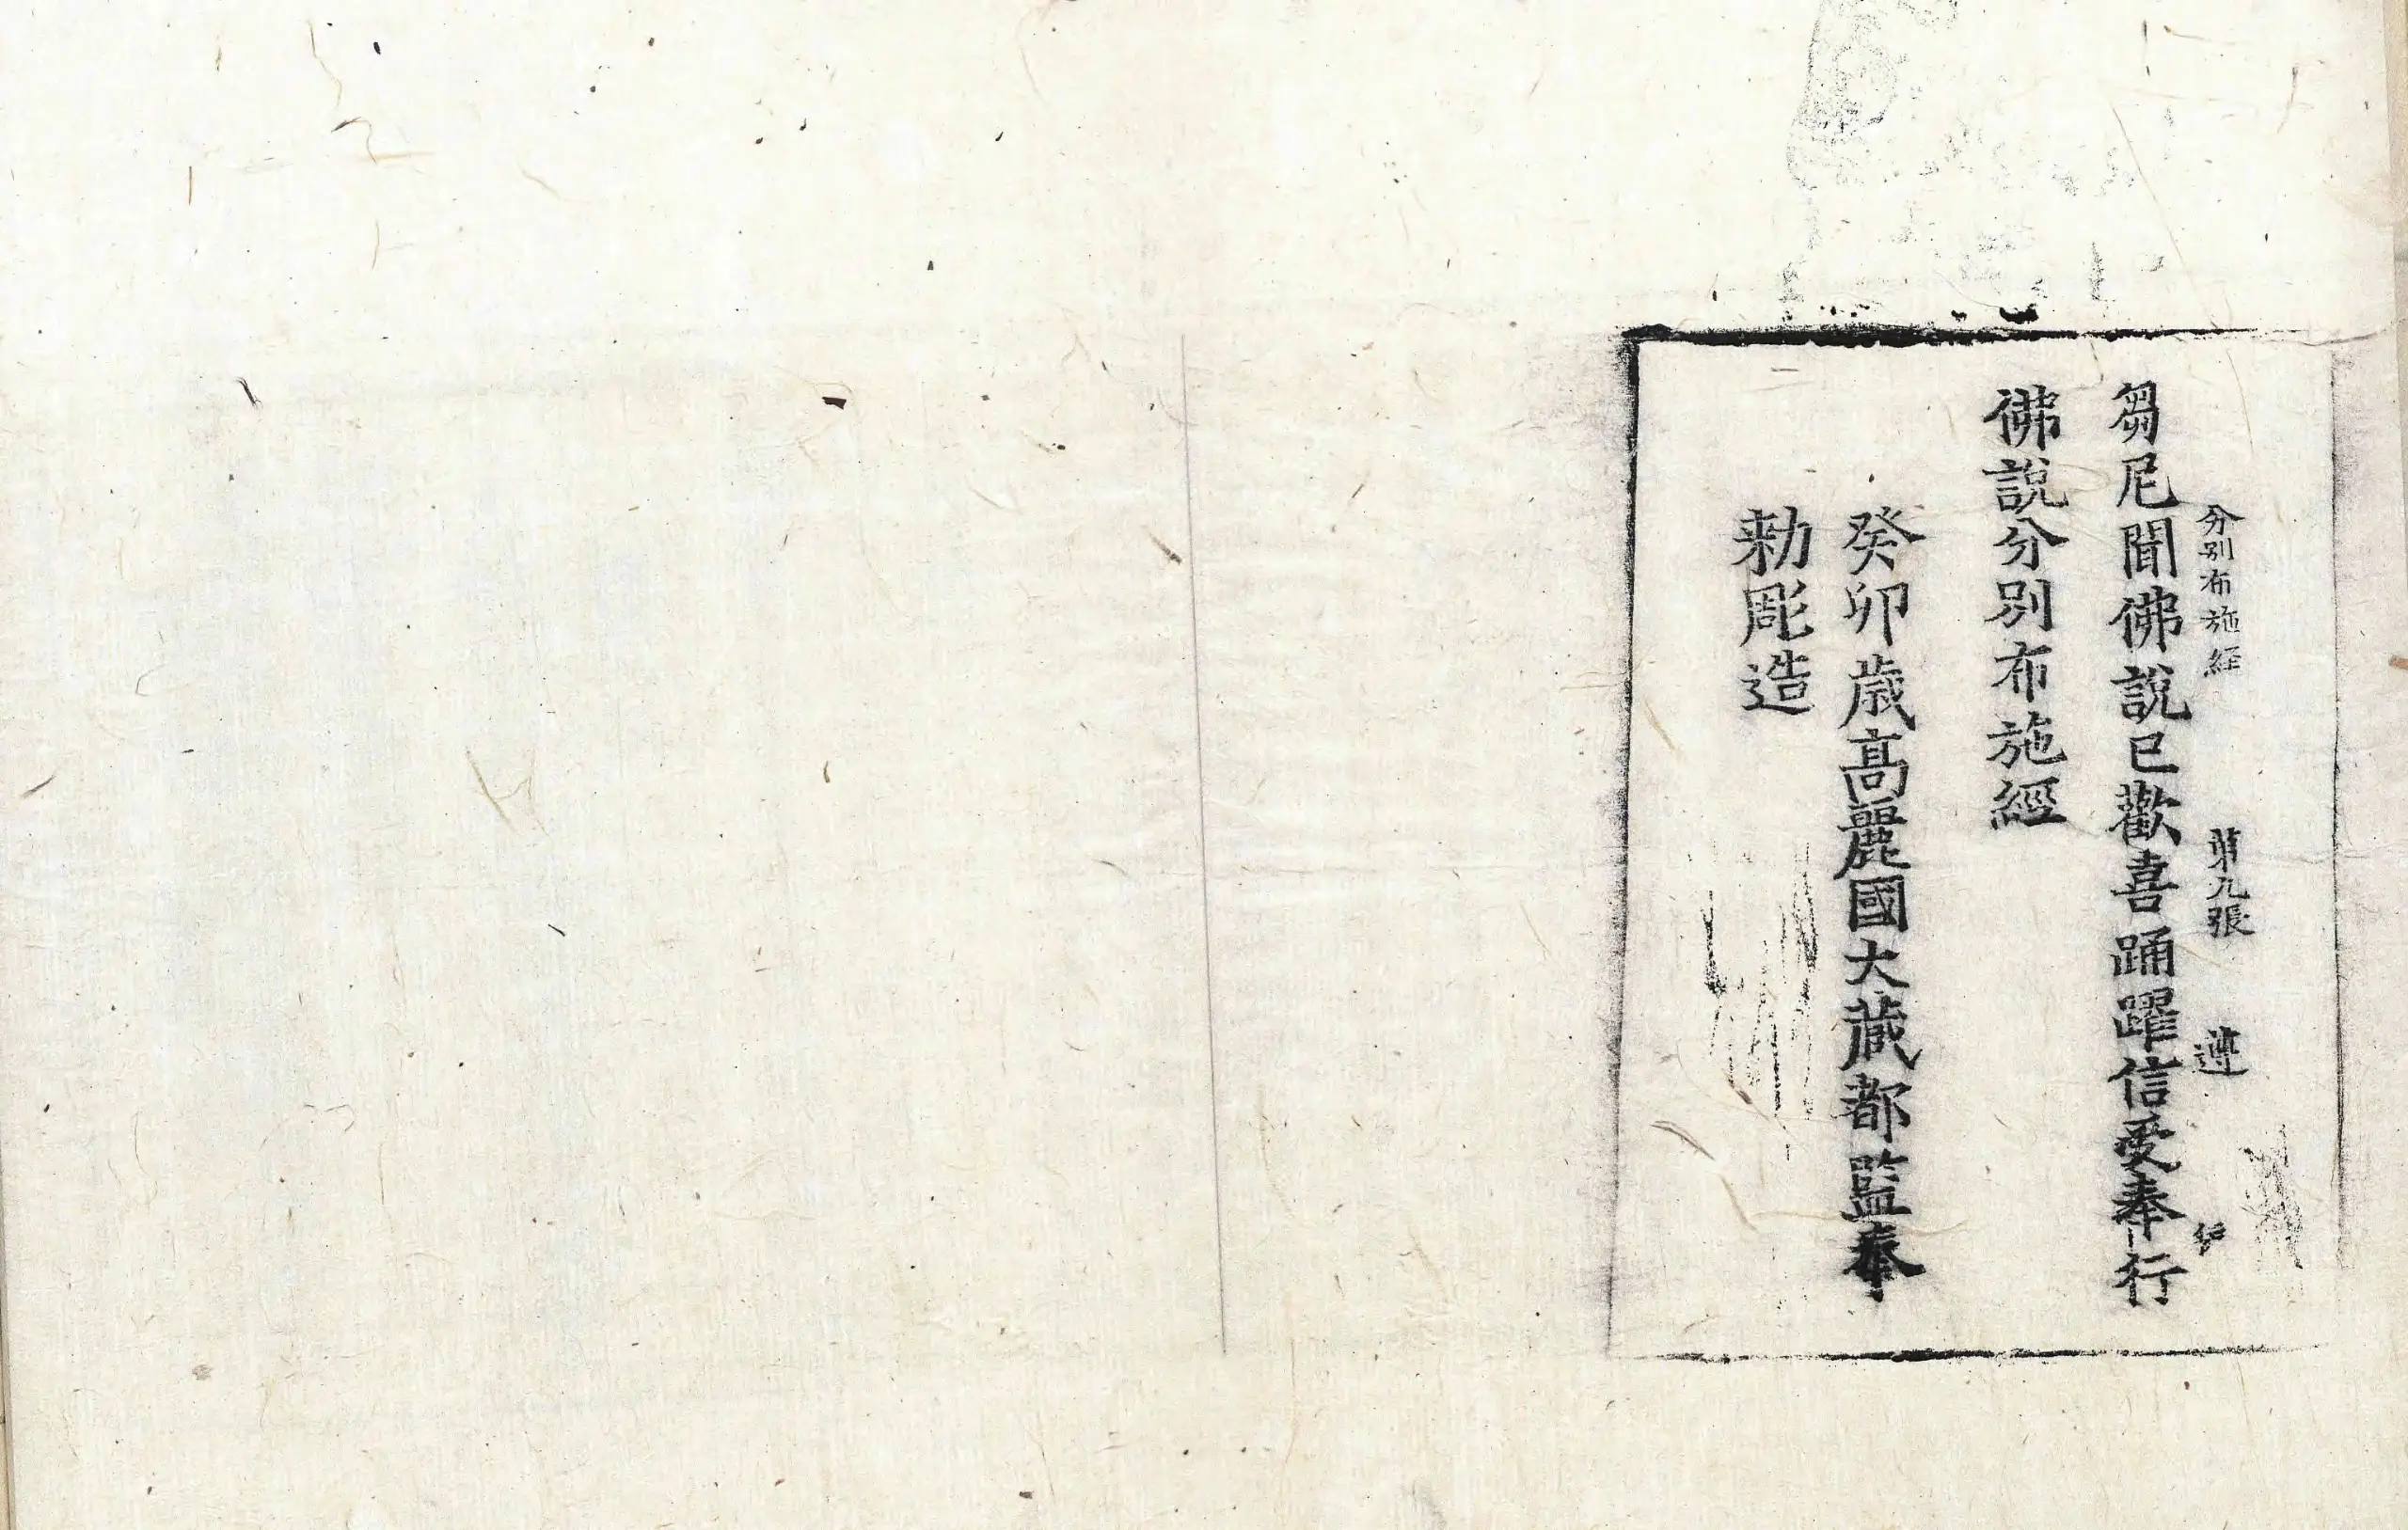 分别布施経 第九張 遵
芻尼聞佛說已歡喜踊躍信受奉行
佛說分別布施經
癸卯歳髙麗國大藏都監奉
勑彫造